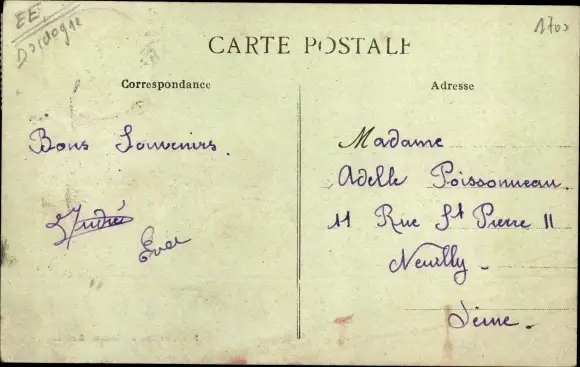 EE.
Dordogne
1700
CARTE POSTALE
Correspondance
Adresse
Bons Souvenirs.
André
Madame
Adelle Poissonneau
11 Rue St Pierre 11
Neuilly -
Seine -